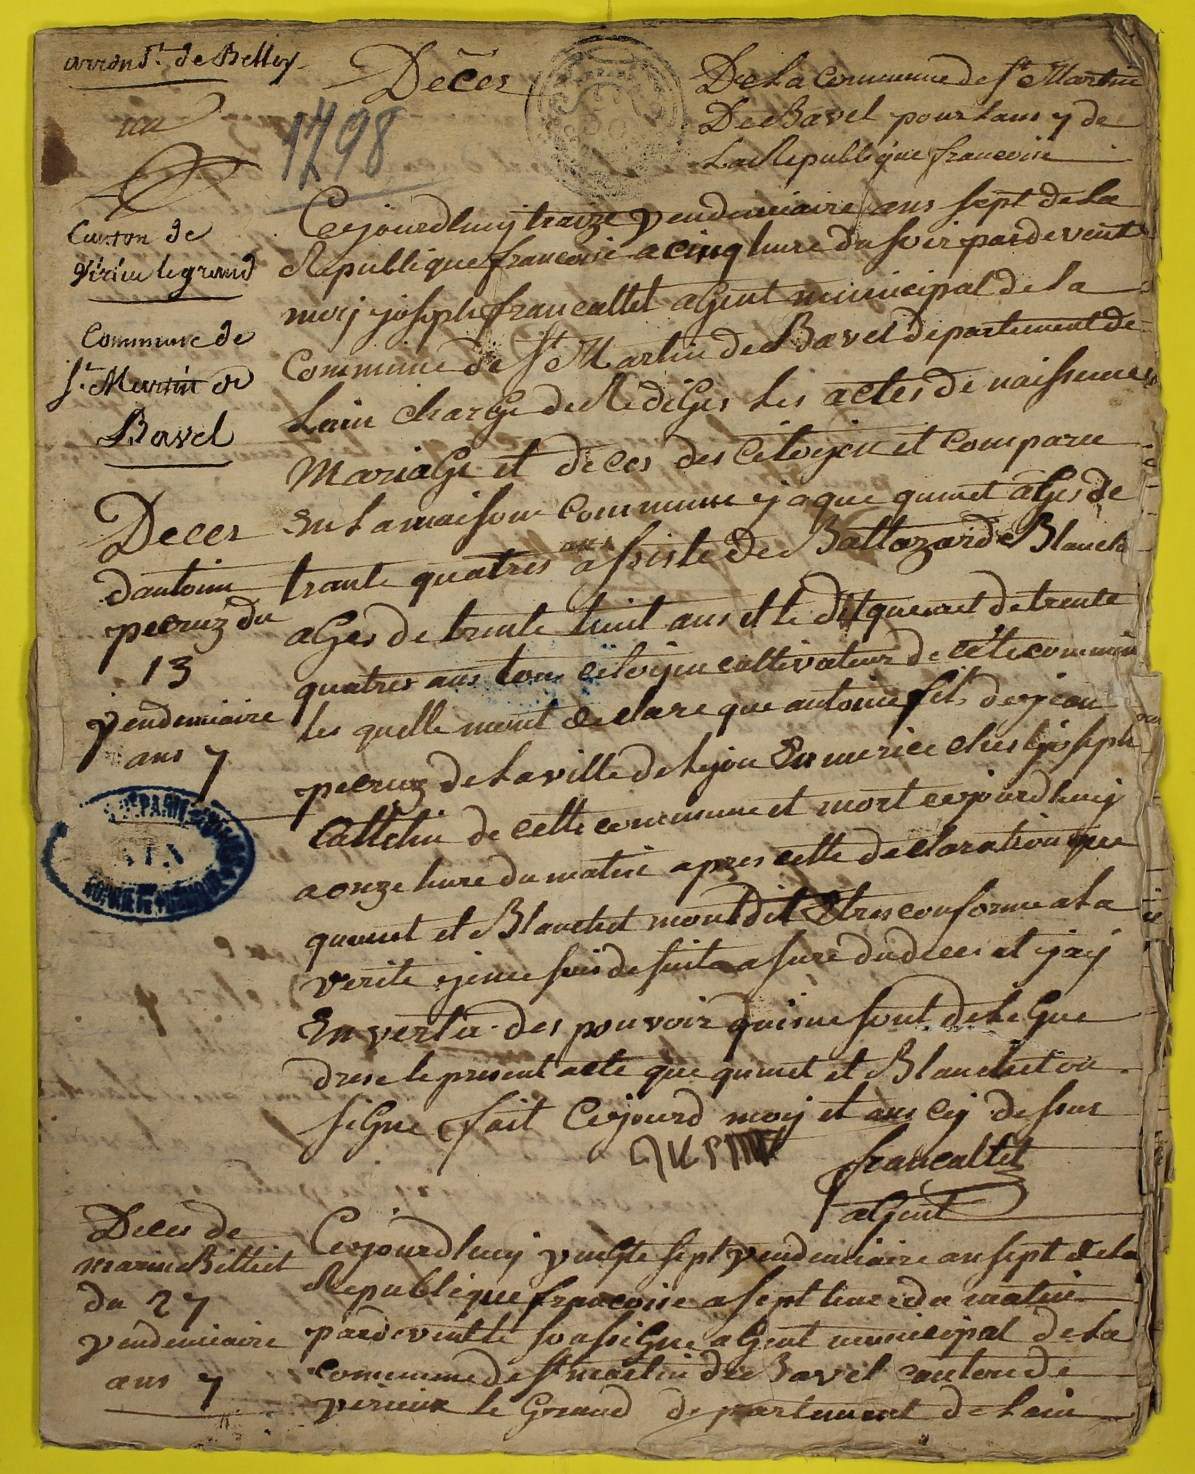 arrond.t de Belley
un
Canton de
Virieu le grand
Commune de
S.t Martin de
Bavel
Decer
1798
De La Commune de St Martin
De Bavel pour Lans 7 de
La Republique francoise
Cejourdhuy traize vendemiaire ans sept de La
Republique francoise a cinq hure du soir par devent
moy joseph francallet agent municipal de La
Commune de St Martin de Bavel departement de
Lain charge de Rediger Les actes de naissence
Mariage et deces des Citoyen et comparu
En La maison Commune jaque quinet ages de
trante quatres ans assiste de Baltazard Blanche
ages de trente huit ans et le dit quinet de trente
quatres ans tou citoyin cultivateur de cete commun
les quelle mont declare que antoine fils de jean
pecruz de La ville de Lyon En nurice ches joseph
Callelin de cette commune et mort cejourdhuy
a onze hure du matin apres cette declaration que
quinet et Blanchet mont dit Etres conforme a La
verite je me suis de suite asure du deces et jay
En vertu des pouvoir qui me sont delegue
drese le present acte que quinet et Blanchet on
signe fait Cejourd moy et ans cy desus
francallet
agent
Decer
dantoine
pecruz du
13
vendemiaire
ans 7
Deces de
marin Billiet
du 27
vendemiaire
ans 7
Cejourdhuy vingte sept vendemiaire an sept de La
Republique francoise a sept hure du matin
pardevent le soussigne agent municipal de La
commune de St martin de Bavel canton de
virieux le Grand departement de Lain